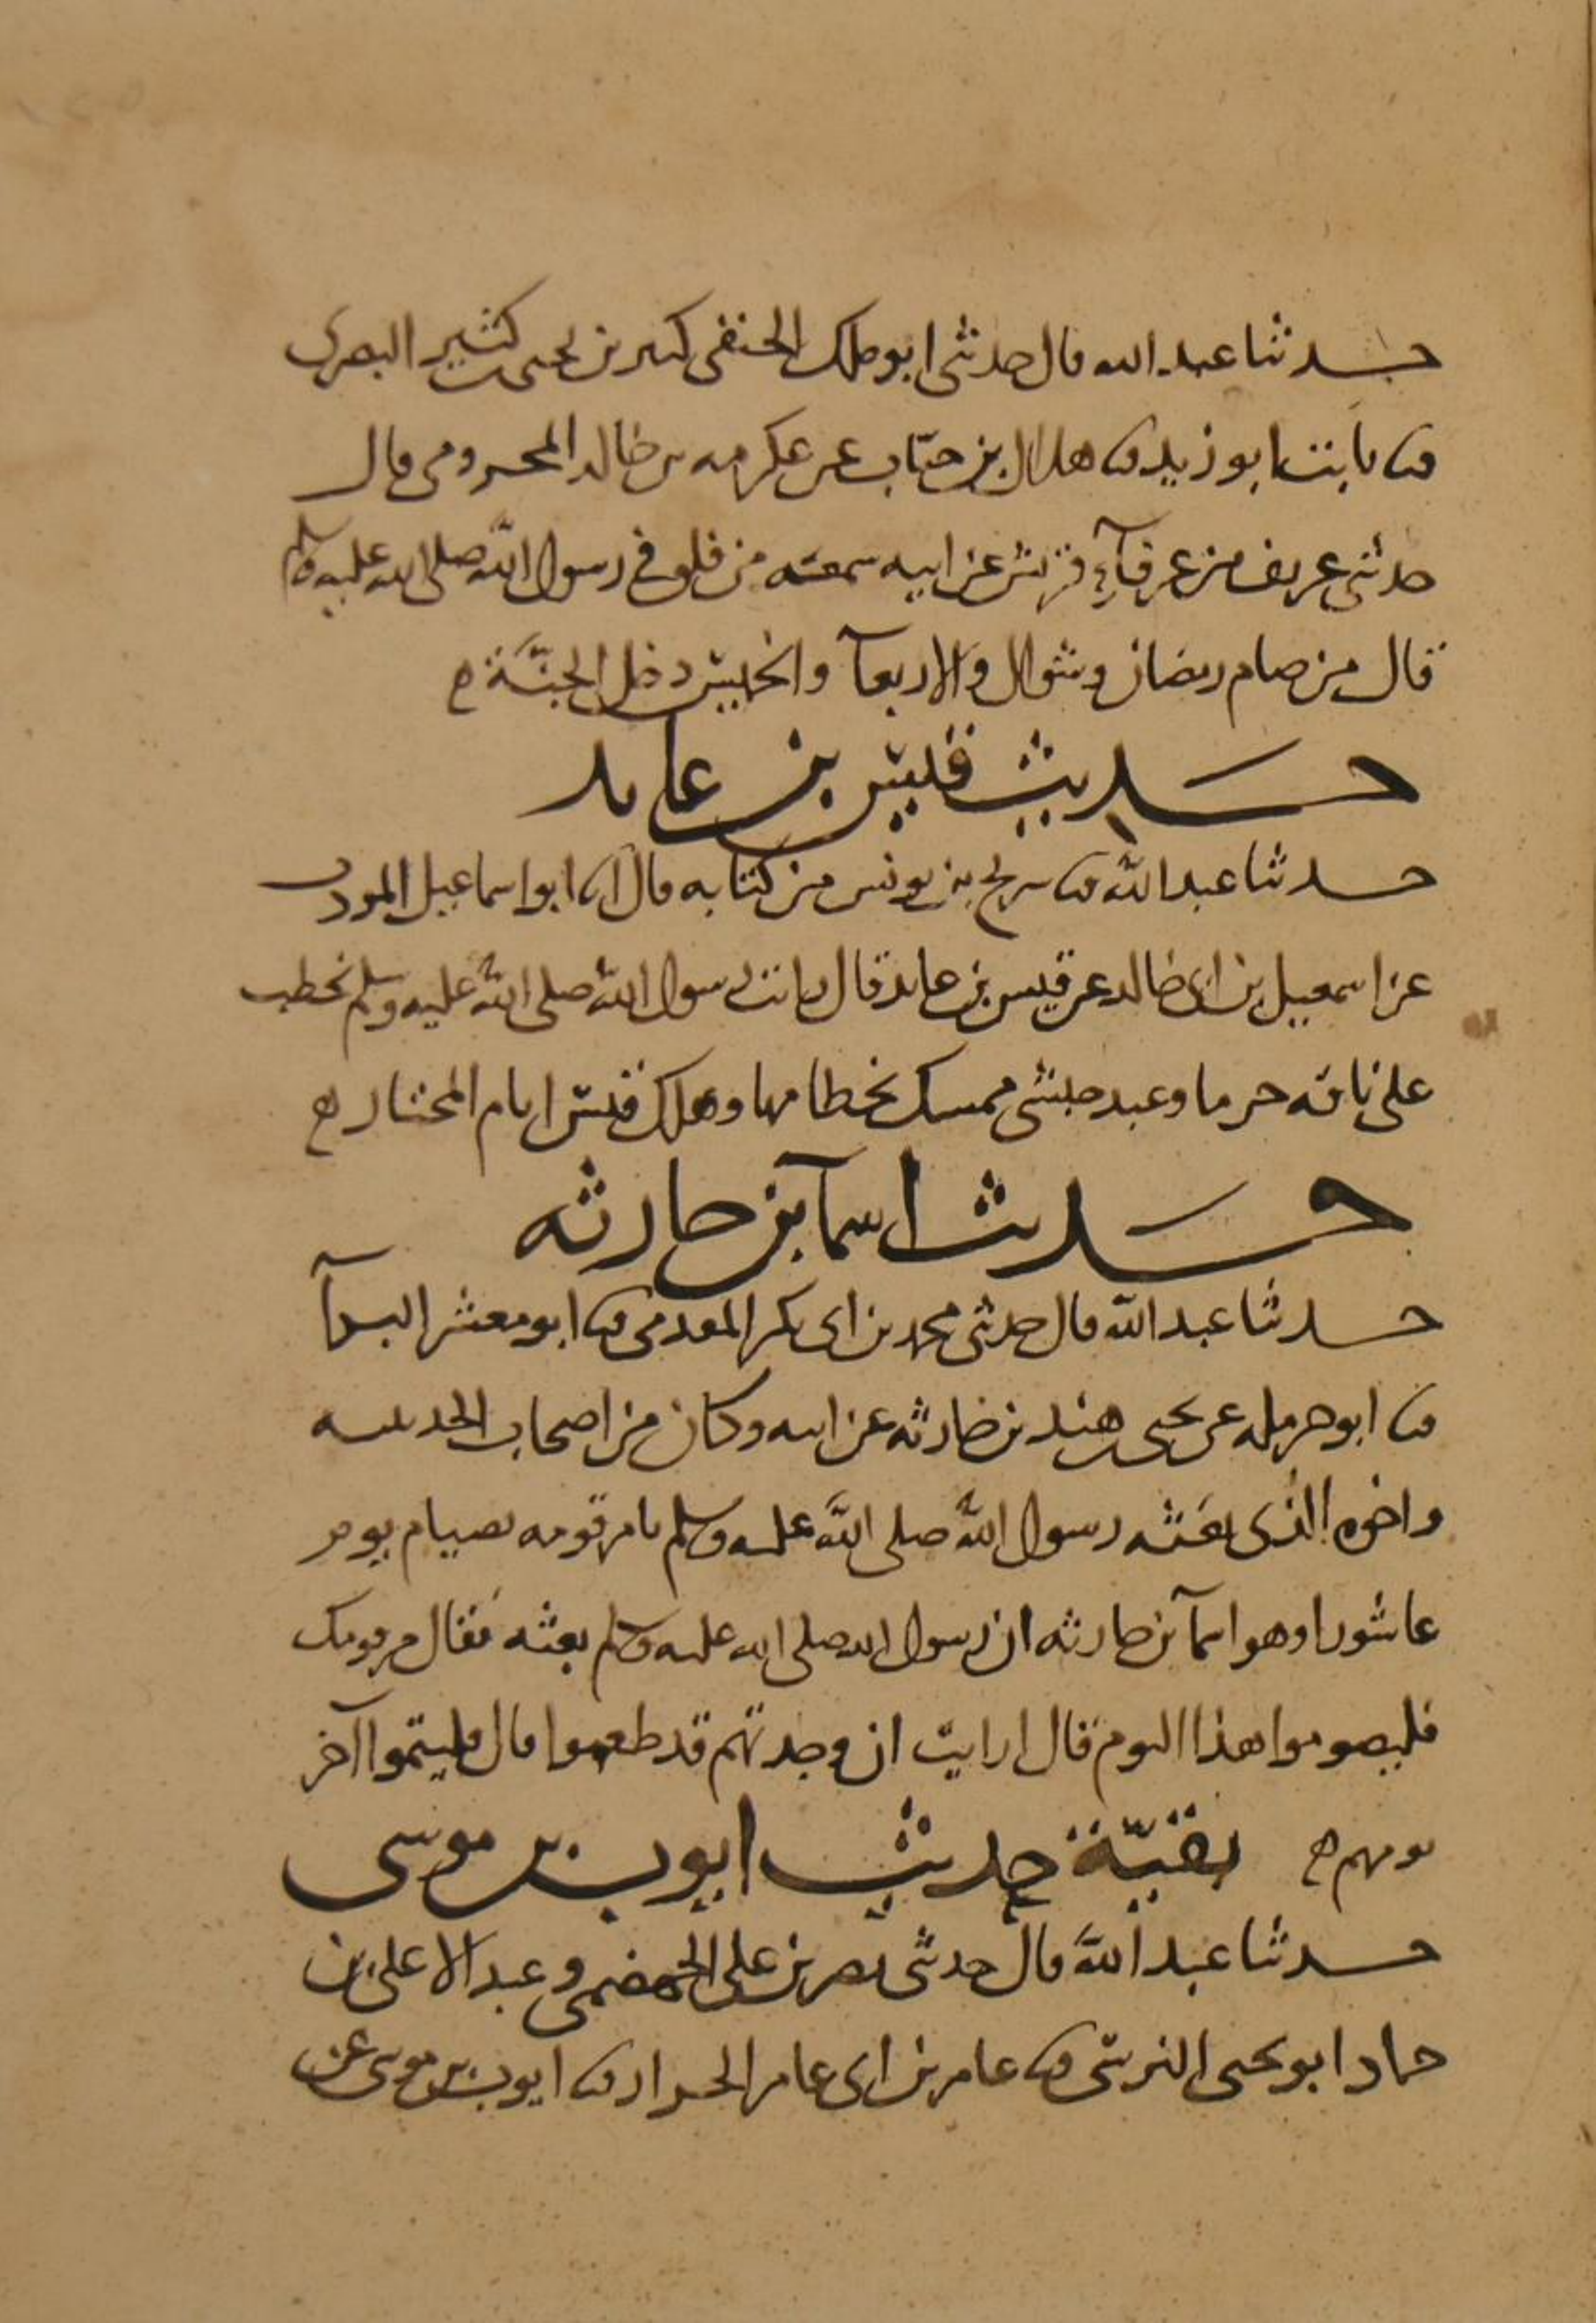 حدثنا عبد الله قال حدثني ابو ملك الحنفي كثير بن يحيى بن كثير البصري
ثنا ثابت ابو زيد ثنا هلال بن خباب عن عكرمه بن خالد المخزومي قال
حدثني عريف من عرفآء قريش عن ابيه سمعه من فلق في رسول الله صلى الله عليه وسلم
قال من صام رمضان وشوال والاربعآ والخميس دخل الجنة ه
حديث قيس بن عايد
حدثنا عبد الله ثنا سريج بن يونس من كتابه قال انا ابو اسماعيل المودب
عن اسمعيل بن ابي خالد عن قيس بن عايد قال رايت رسول الله صلى الله عليه وسلم يخطب
على ناقه خرما وعبد حبشي ممسك بخطامها وهلك قيس ايام المختار ه
حديث اسمآ بن حارثه
حدثنا عبد الله قال حدثني محمد بن ابي بكر المقدمي ثنا ابو معشر البرآ
ثنا ابو حرمله عن يحيى بن هند بن حارثه عن ابيه وكان من اصحاب الحديبيه
واخوه الذي بعثه رسول الله صلى الله عليه وسلم يامر قومه بصيام يوم
عاشورا وهو اسمآ بن حارثه ان رسول الله صلى الله عليه وسلم بعثه فقال مر قومك
فليصوموا هذا اليوم قال ارايت ان وجدتهم قد طعموا قال فليتموا آخر
يومهم ه بقيّة حديث ايوب بن موسى
حدثنا عبد الله قال حدثني نصر بن علي الجهضمي وعبد الاعلى بن
حماد ابو يحيى النرسي ثنا عامر بن ابي عامر الخزاز ثنا ايوب بن موسى عن